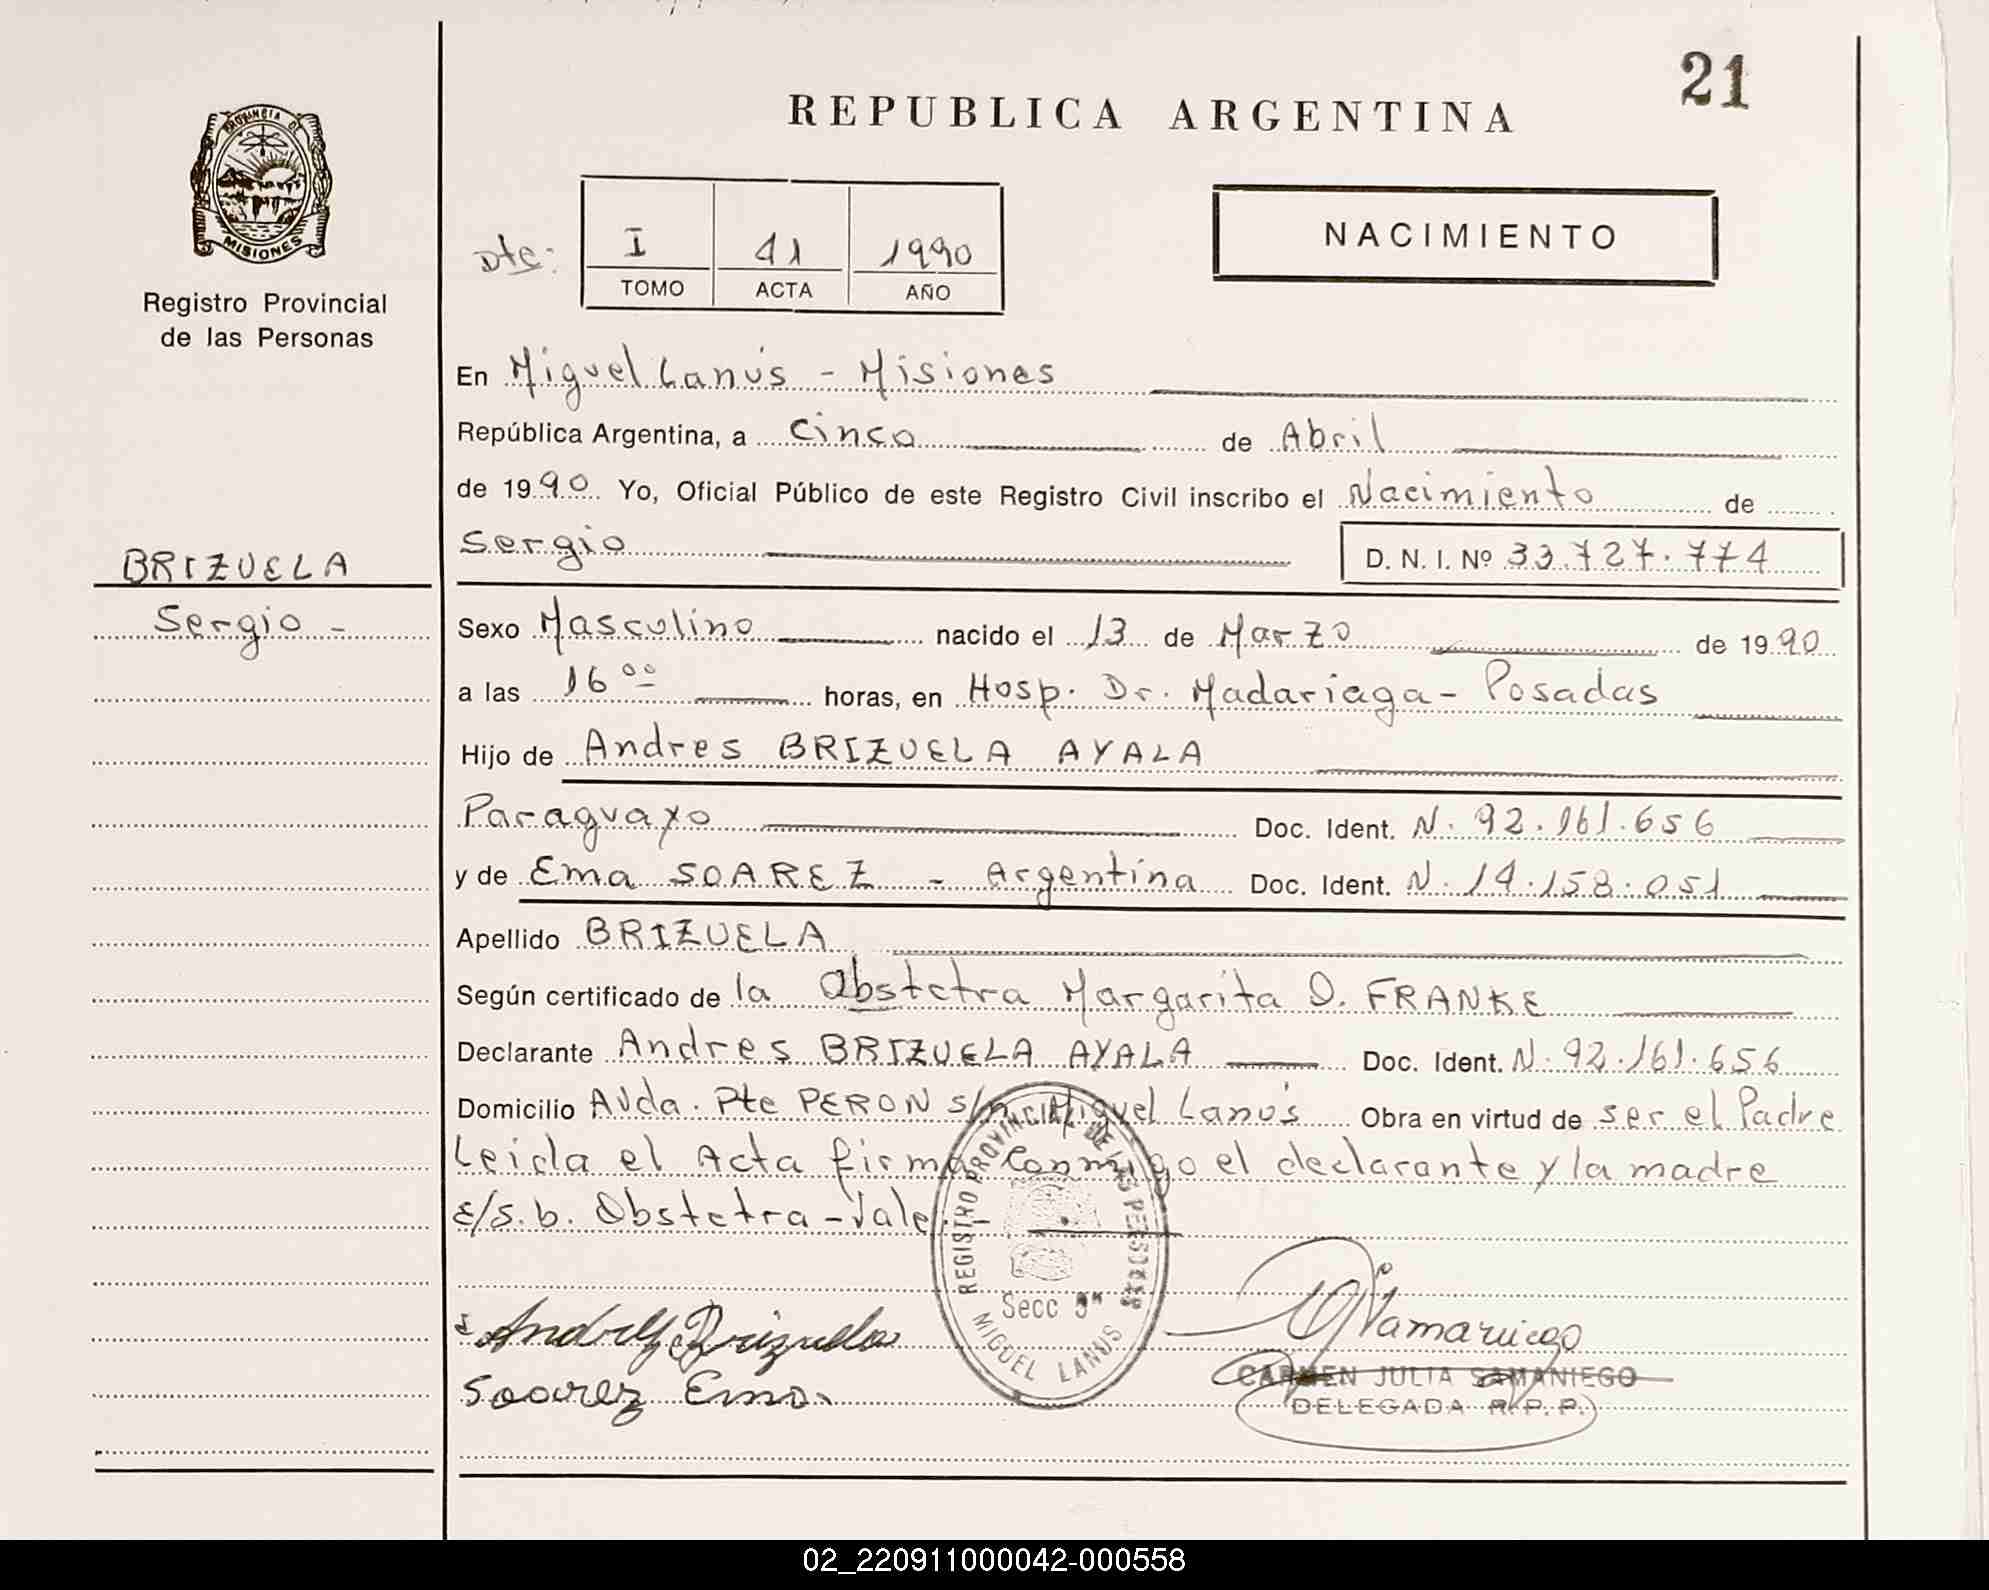 21
REPUBLICA ARGENTINA
PROVINCIA DE
MISIONES
Registro Provincial
de las Personas
Dto:
I 41 1990
TOMO ACTA AÑO
NACIMIENTO
En Miguel Lanús - Misiones
República Argentina, a Cinco de Abril
de 1990 Yo, Oficial Público de este Registro Civil inscribo el Nacimiento de
Sergio D. N. I. Nº 33.727.774
BRIZUELA
Sergio -
Sexo Masculino nacido el 13 de Marzo de 1990
a las 16 00 horas, en Hosp. Dr. Madariaga - Posadas
Hijo de Andres BRIZUELA AYALA
Paraguayo Doc. Ident. N. 92.161.656
y de Ema SOAREZ - Argentina Doc. Ident. N. 14.158.051
Apellido BRIZUELA
Según certificado de la Obstetra Margarita D. FRANKE
Declarante Andres BRIZUELA AYALA Doc. Ident. N. 92.161.656
Domicilio Avda. Pte PERON s/n Miguel Lanús Obra en virtud de ser el Padre
Leida el Acta firma conmigo el declarante y la madre
E/s.b. Obstetra - Vale -
REGISTRO PROVINCIAL DE LAS PERSONAS
Secc 5ª
MIGUEL LANUS
Andres Brizuela
Soarez Ema.
CJSamaniego
CARMEN JULIA SAMANIEGO
DELEGADA R. P. P.
02_220911000042-000558